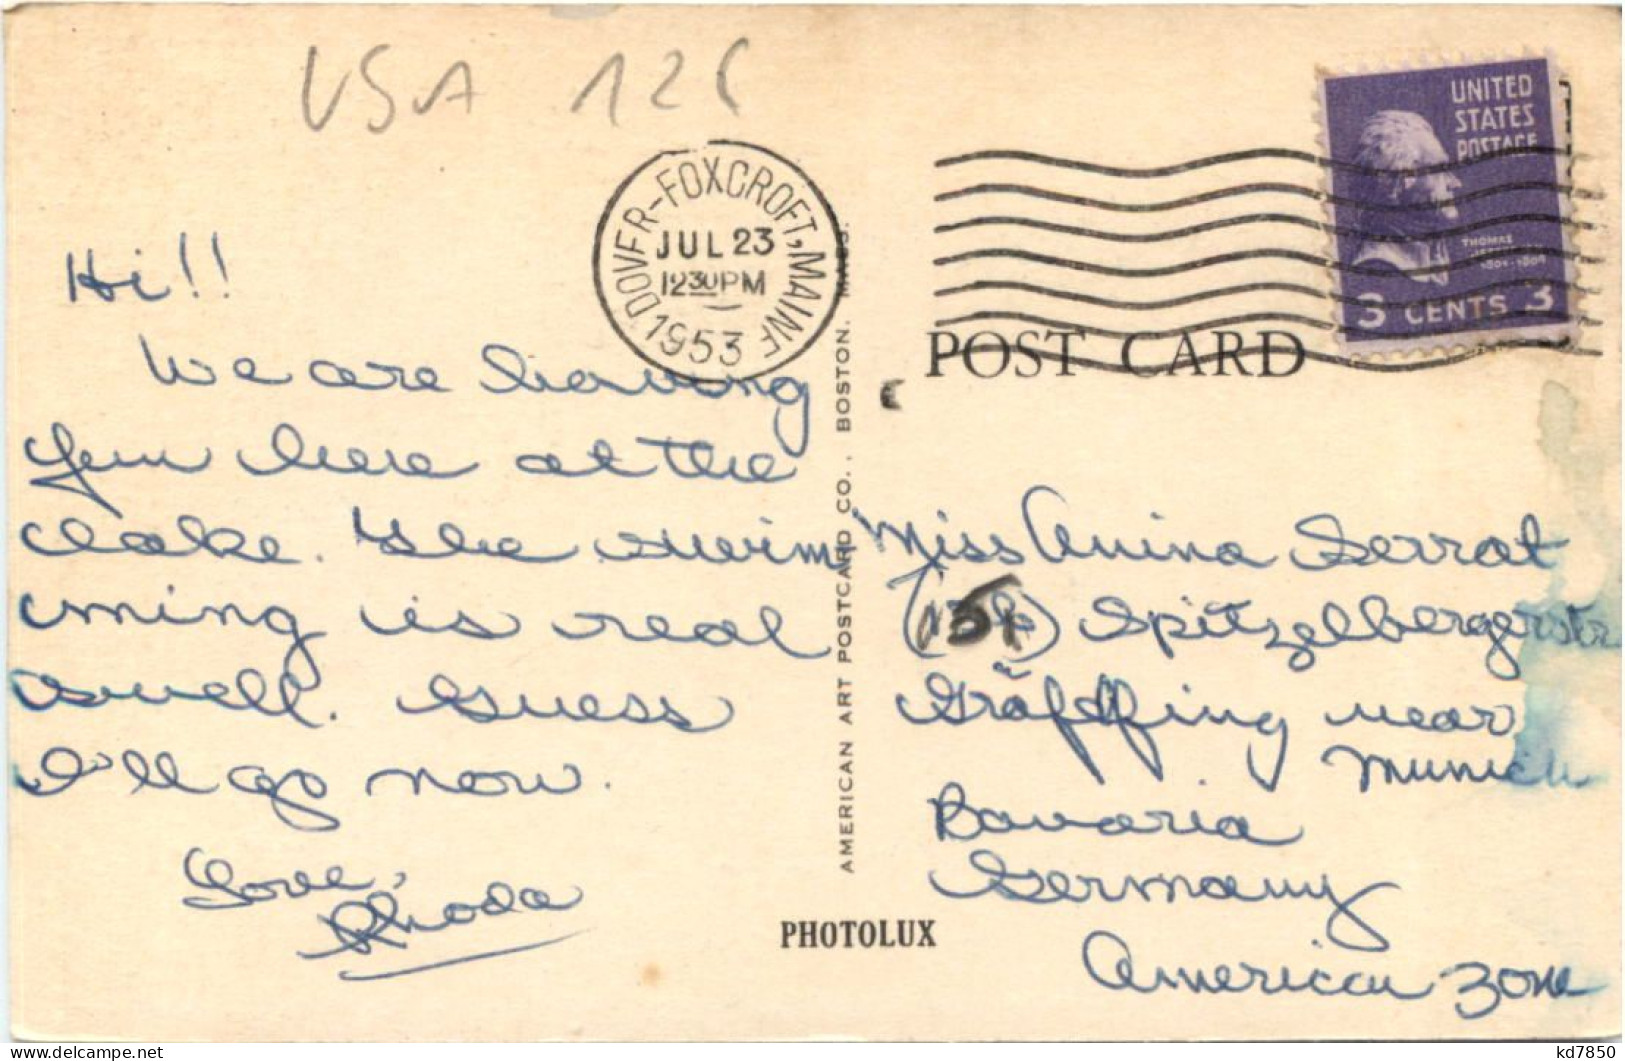 USA 126
DOVER-FOXCROFT, MAINE
JUL 23
12 30 PM
1953
UNITED
STATES
POSTAGE
THOMAS
JEFFERSON
1801-1809
3 CENTS 3
POST CARD
Hi!!
We are having
fun here at the
lake. The swim
ming is real
swell. Guess
I'll go now.
Love,
Rhoda
AMERICAN ART POSTCARD CO., BOSTON, MASS.
PHOTOLUX
Miss Anina Serrat
Spitzelbergerstr
Gräfffing near
Munich
Bavaria
Germany
American Zone
kd7850